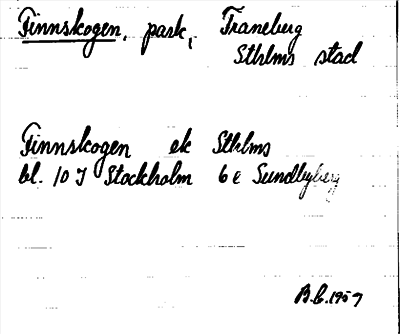 Finnskogen, park, Traneberg
Sthlms stad
Finnskogen ek Sthlms
bl. 10 I Stockholm 6 e Sundbyberg
B.C. 1957